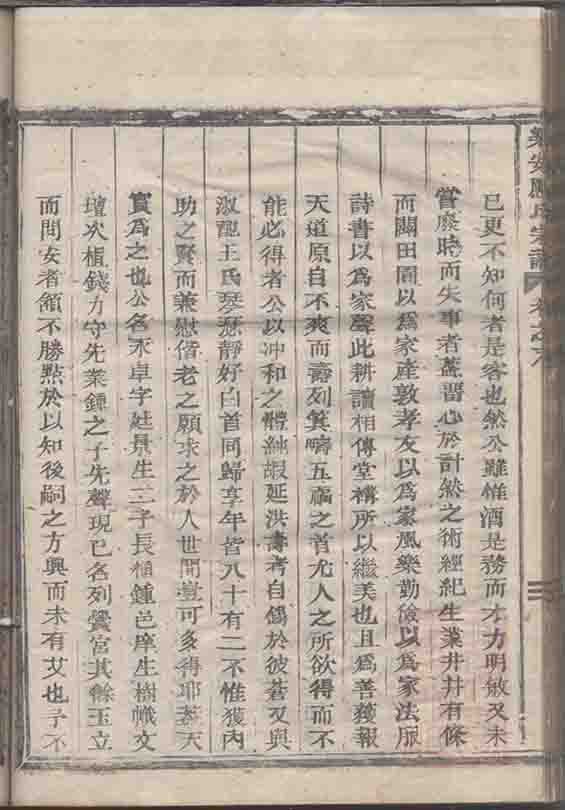 宗譜 卷之六
已更不知何者是客也然公雖惟酒是務而才力明敏又未
嘗廢時而失事者蓋習心於計然之術經紀生業井井有條
而闢田園以爲家產敦孝友以爲家風樂勤儉以爲家法服
詩書以爲家聲此耕讀相傳堂構所以繼美也且爲善獲報
天道原自不爽而壽列箕疇五福之首尤人之所欲得而不
能必得者公以冲和之體純嘏延洪壽考自偁於彼蒼又與
淑配王氏琴瑟靜好白首同歸享年皆八十有二不惟獲內
助之賢而兼慰偕老之願求之於人世間豈可多得耶蓋天
實爲之也公名永卓字 景生三子長 鍾邑庠生樹幟文
壇次 錢力守先業鍾之子先聲現已名列黌宮其餘玉立
而問安者頷不勝點於以知後嗣之方興而未有艾也予不